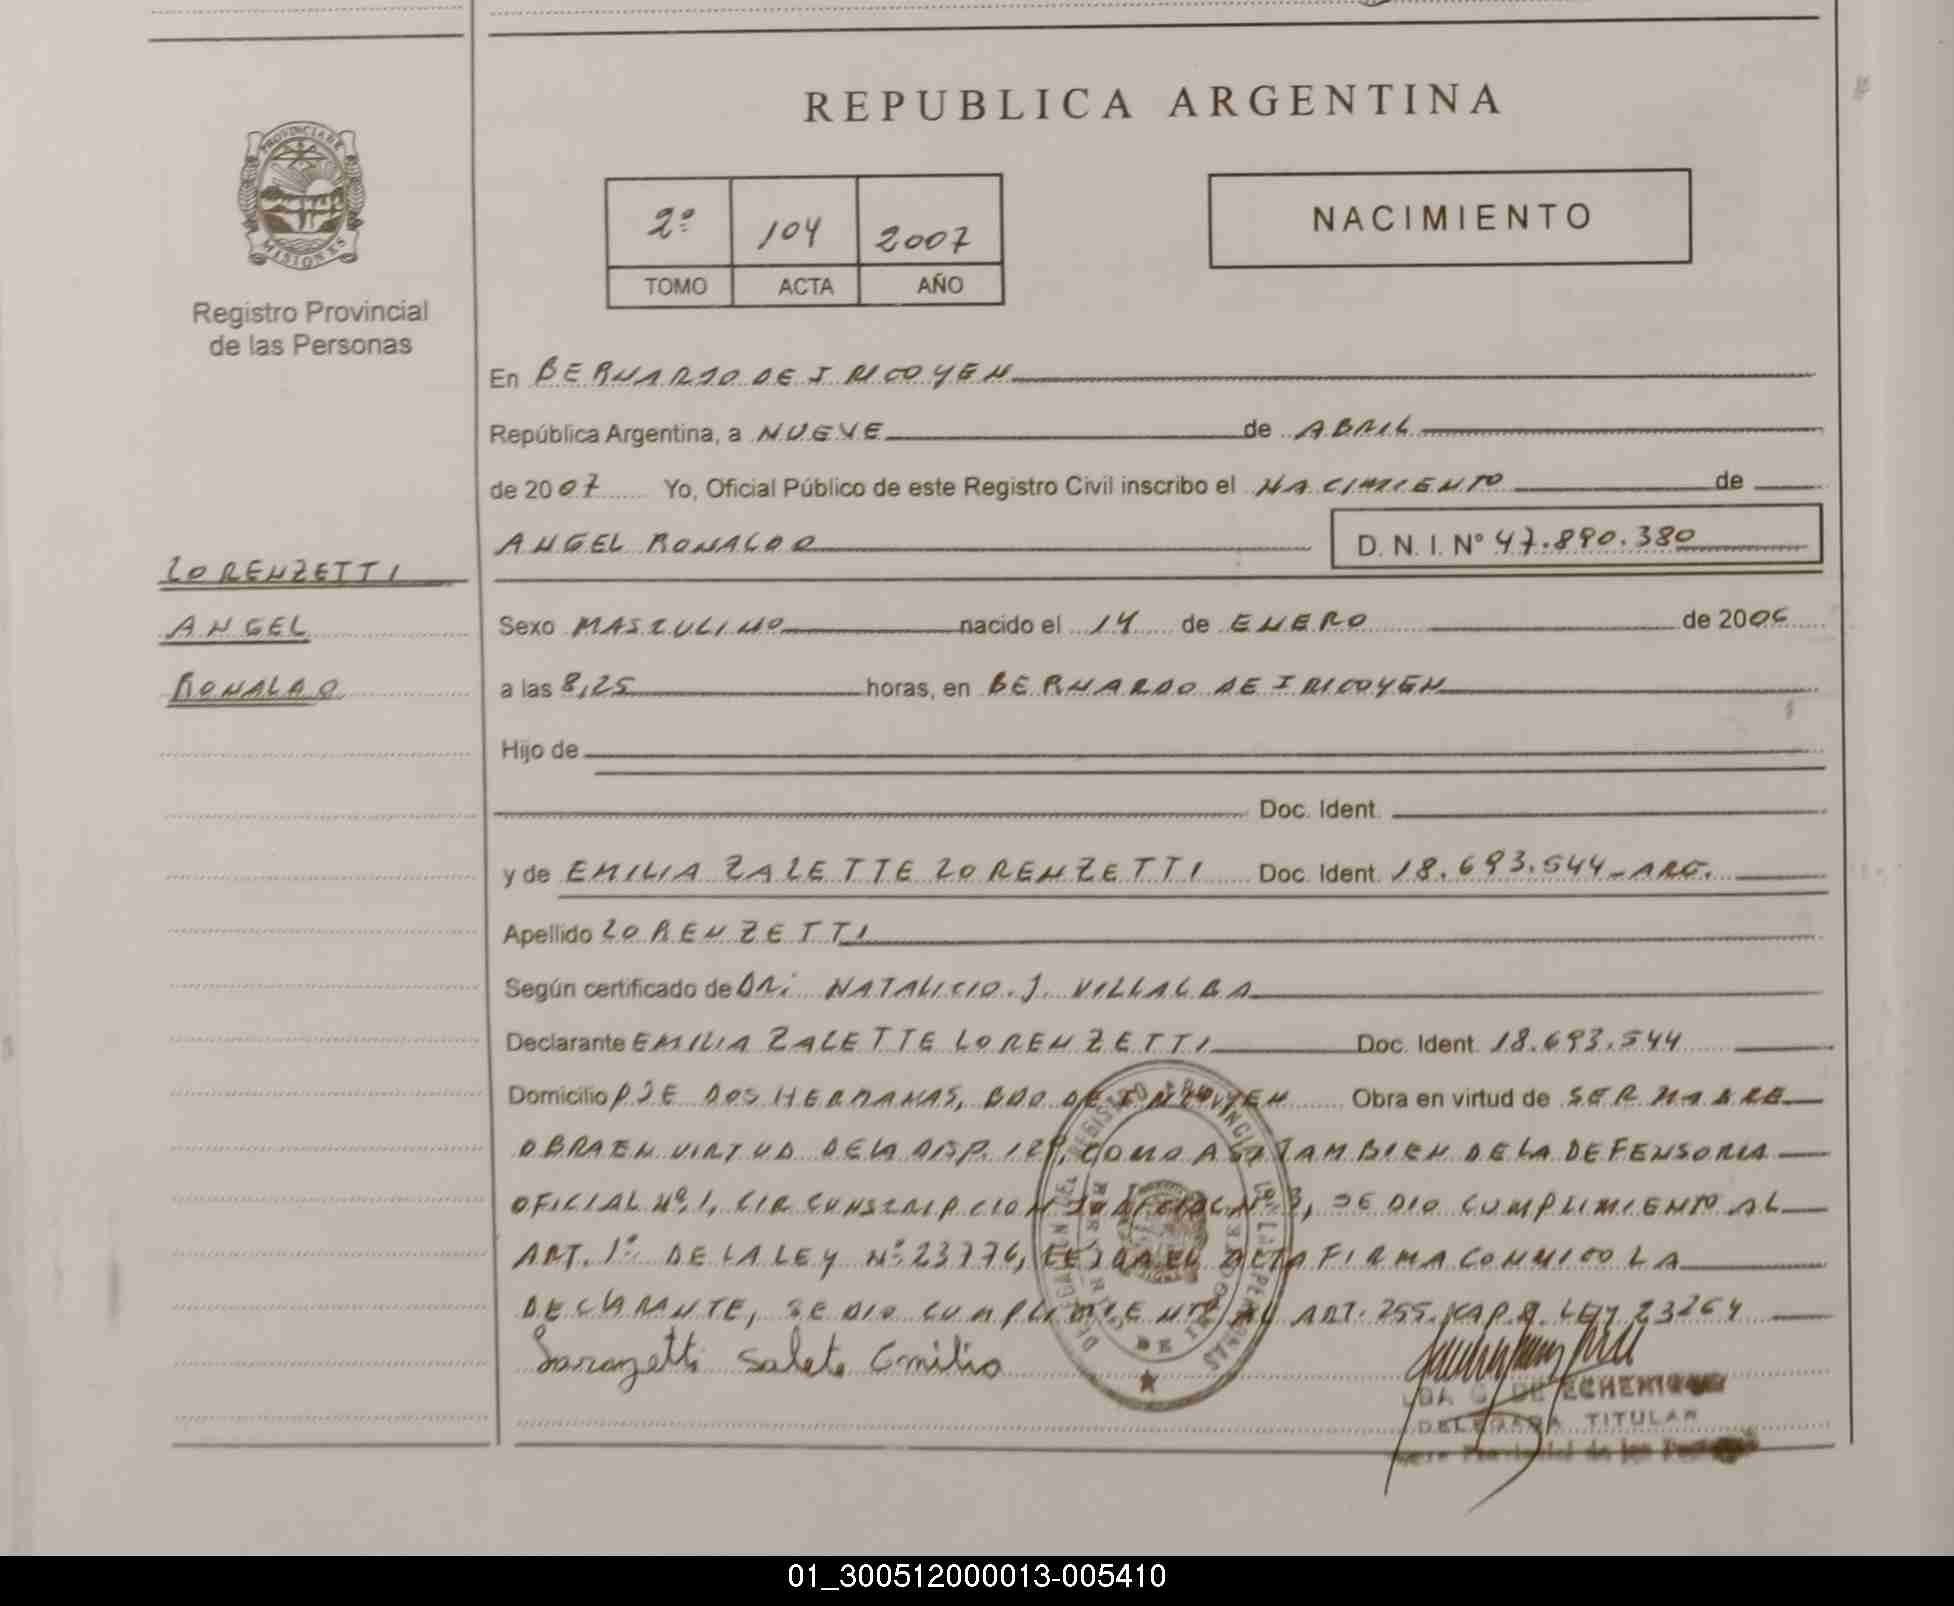 REPUBLICA ARGENTINA
PROVINCIA DE MISIONES
2º 104 2007
TOMO ACTA AÑO
NACIMIENTO
Registro Provincial
de las Personas
En BERNARDO DE IRIGOYEN
República Argentina, a NUEVE de ABRIL
de 2007 Yo, Oficial Público de este Registro Civil inscribo el NACIMIENTO de
ANGEL RONALDO D. N. I. Nº 47.890.380
LORENZETTI
ANGEL
RONALDO
Sexo MASCULINO nacido el 14 de ENERO de 2006
a las 8,25 horas, en BERNARDO DE IRIGOYEN
Hijo de
Doc. Ident.
y de EMILIA ZALETTE LORENZETTI Doc. Ident. 18.693.544-ARG.
Apellido LORENZETTI
Según certificado de DR. NATALICIO. J. VILLALBA
Declarante EMILIA ZALETTE LORENZETTI Doc. Ident. 18.693.544
Domicilio PJE DOS HERMANAS, BDO DE IRIGOYEN Obra en virtud de SER MADRE
OBRA EN VIRTUD DE LA DISP. COMO ASI TAMBIEN DE LA DEFENSORIA
OFICIAL Nº 1, CIRCUNSCRIPCION JUDICIAL Nº 3, SE DIO CUMPLIMIENTO AL
ART. 1º DE LA LEY Nº 23776, LEIDA EL ACTA FIRMA CONMIGO LA
DECLARANTE, SE DIO CUMPLIMIENTO AL ART. 255. CAP. LEY 23264
Lorenzetti Salete Emilia
DE ECHENIQUE
DELEGADA TITULAR
Provincial de las
01_300512000013-005410